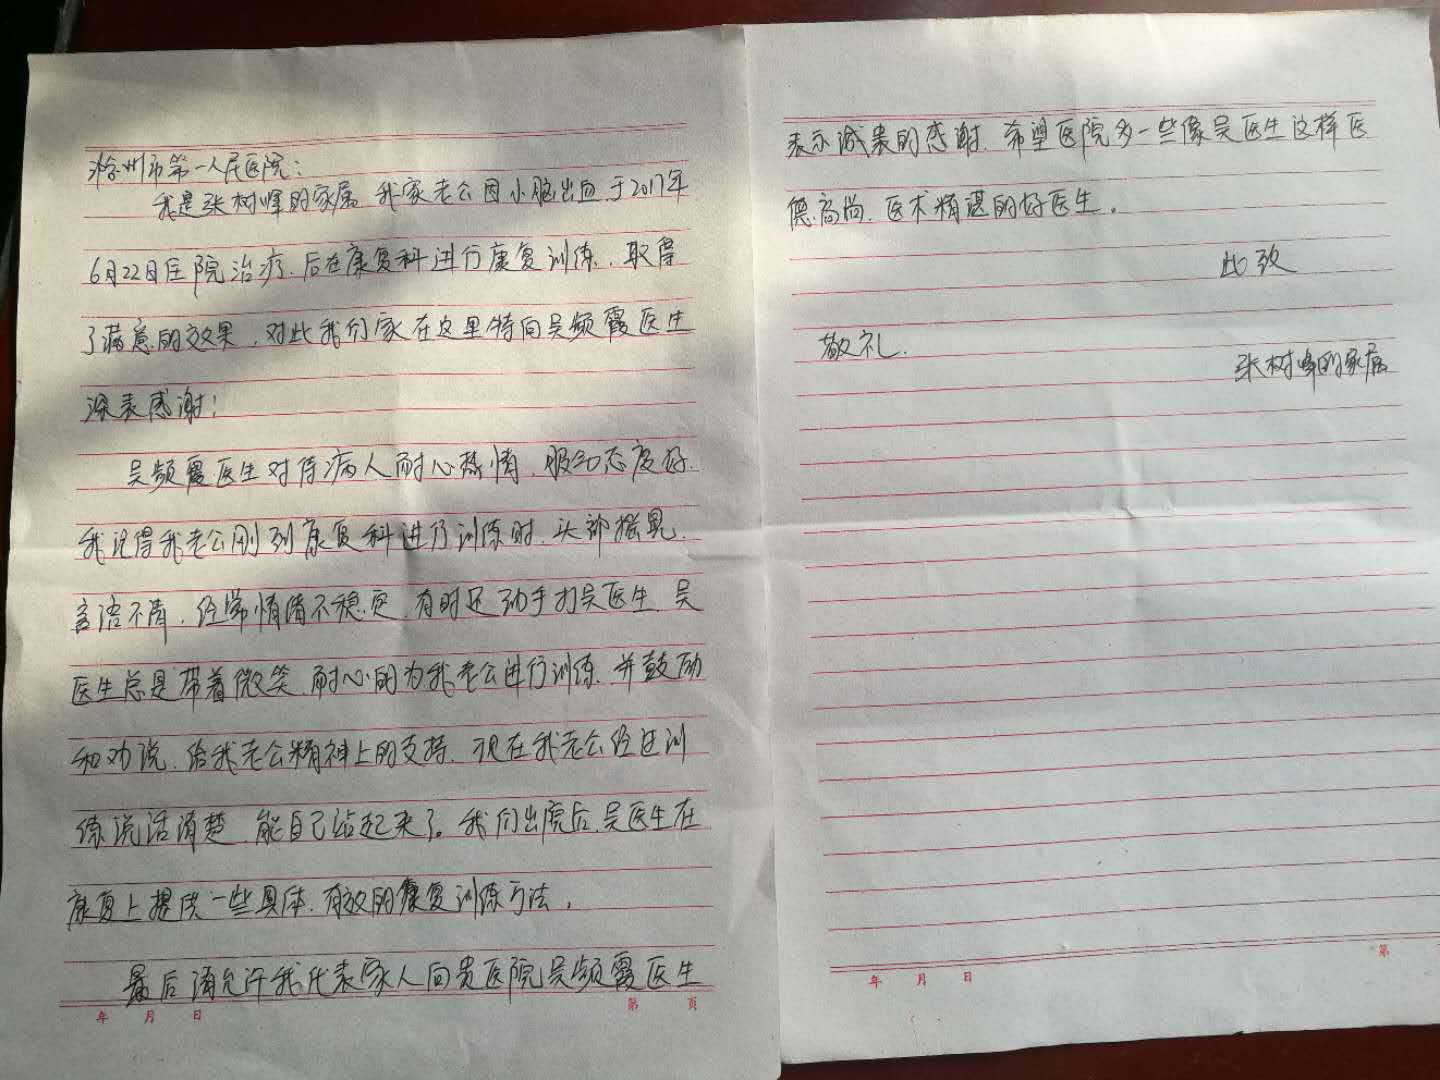 沧州市第一人民医院：
我是张树峰的家属 我家老公因小脑出血于2017年
6月22日住院治疗、后在康复科进行康复训练、取得
了满意的效果，对此我们家在这里特向吴频霞医生
深表感谢！
吴频霞医生对待病人耐心热情、服务态度好、
我记得我老公刚到康复科进行训练时、头部摇晃、
言语不清、经常情绪不稳定、有时还动手打吴医生、吴
医生总是带着微笑、耐心的为我老公进行训练、并鼓励
和劝说、给我老公精神上的支持、现在我老公经过训
练说话清楚、能自己站起来了。我们出院后、吴医生在
康复上提供一些具体、有效的康复训练方法，
最后请允许我代表家人向贵医院吴频霞医生
年 月 日 第 页
表示诚衷的感谢、希望医院多一些像吴医生这样医
德高尚、医术精湛的好医生。
此致
敬礼、
张树峰的家属
年 月 日 第